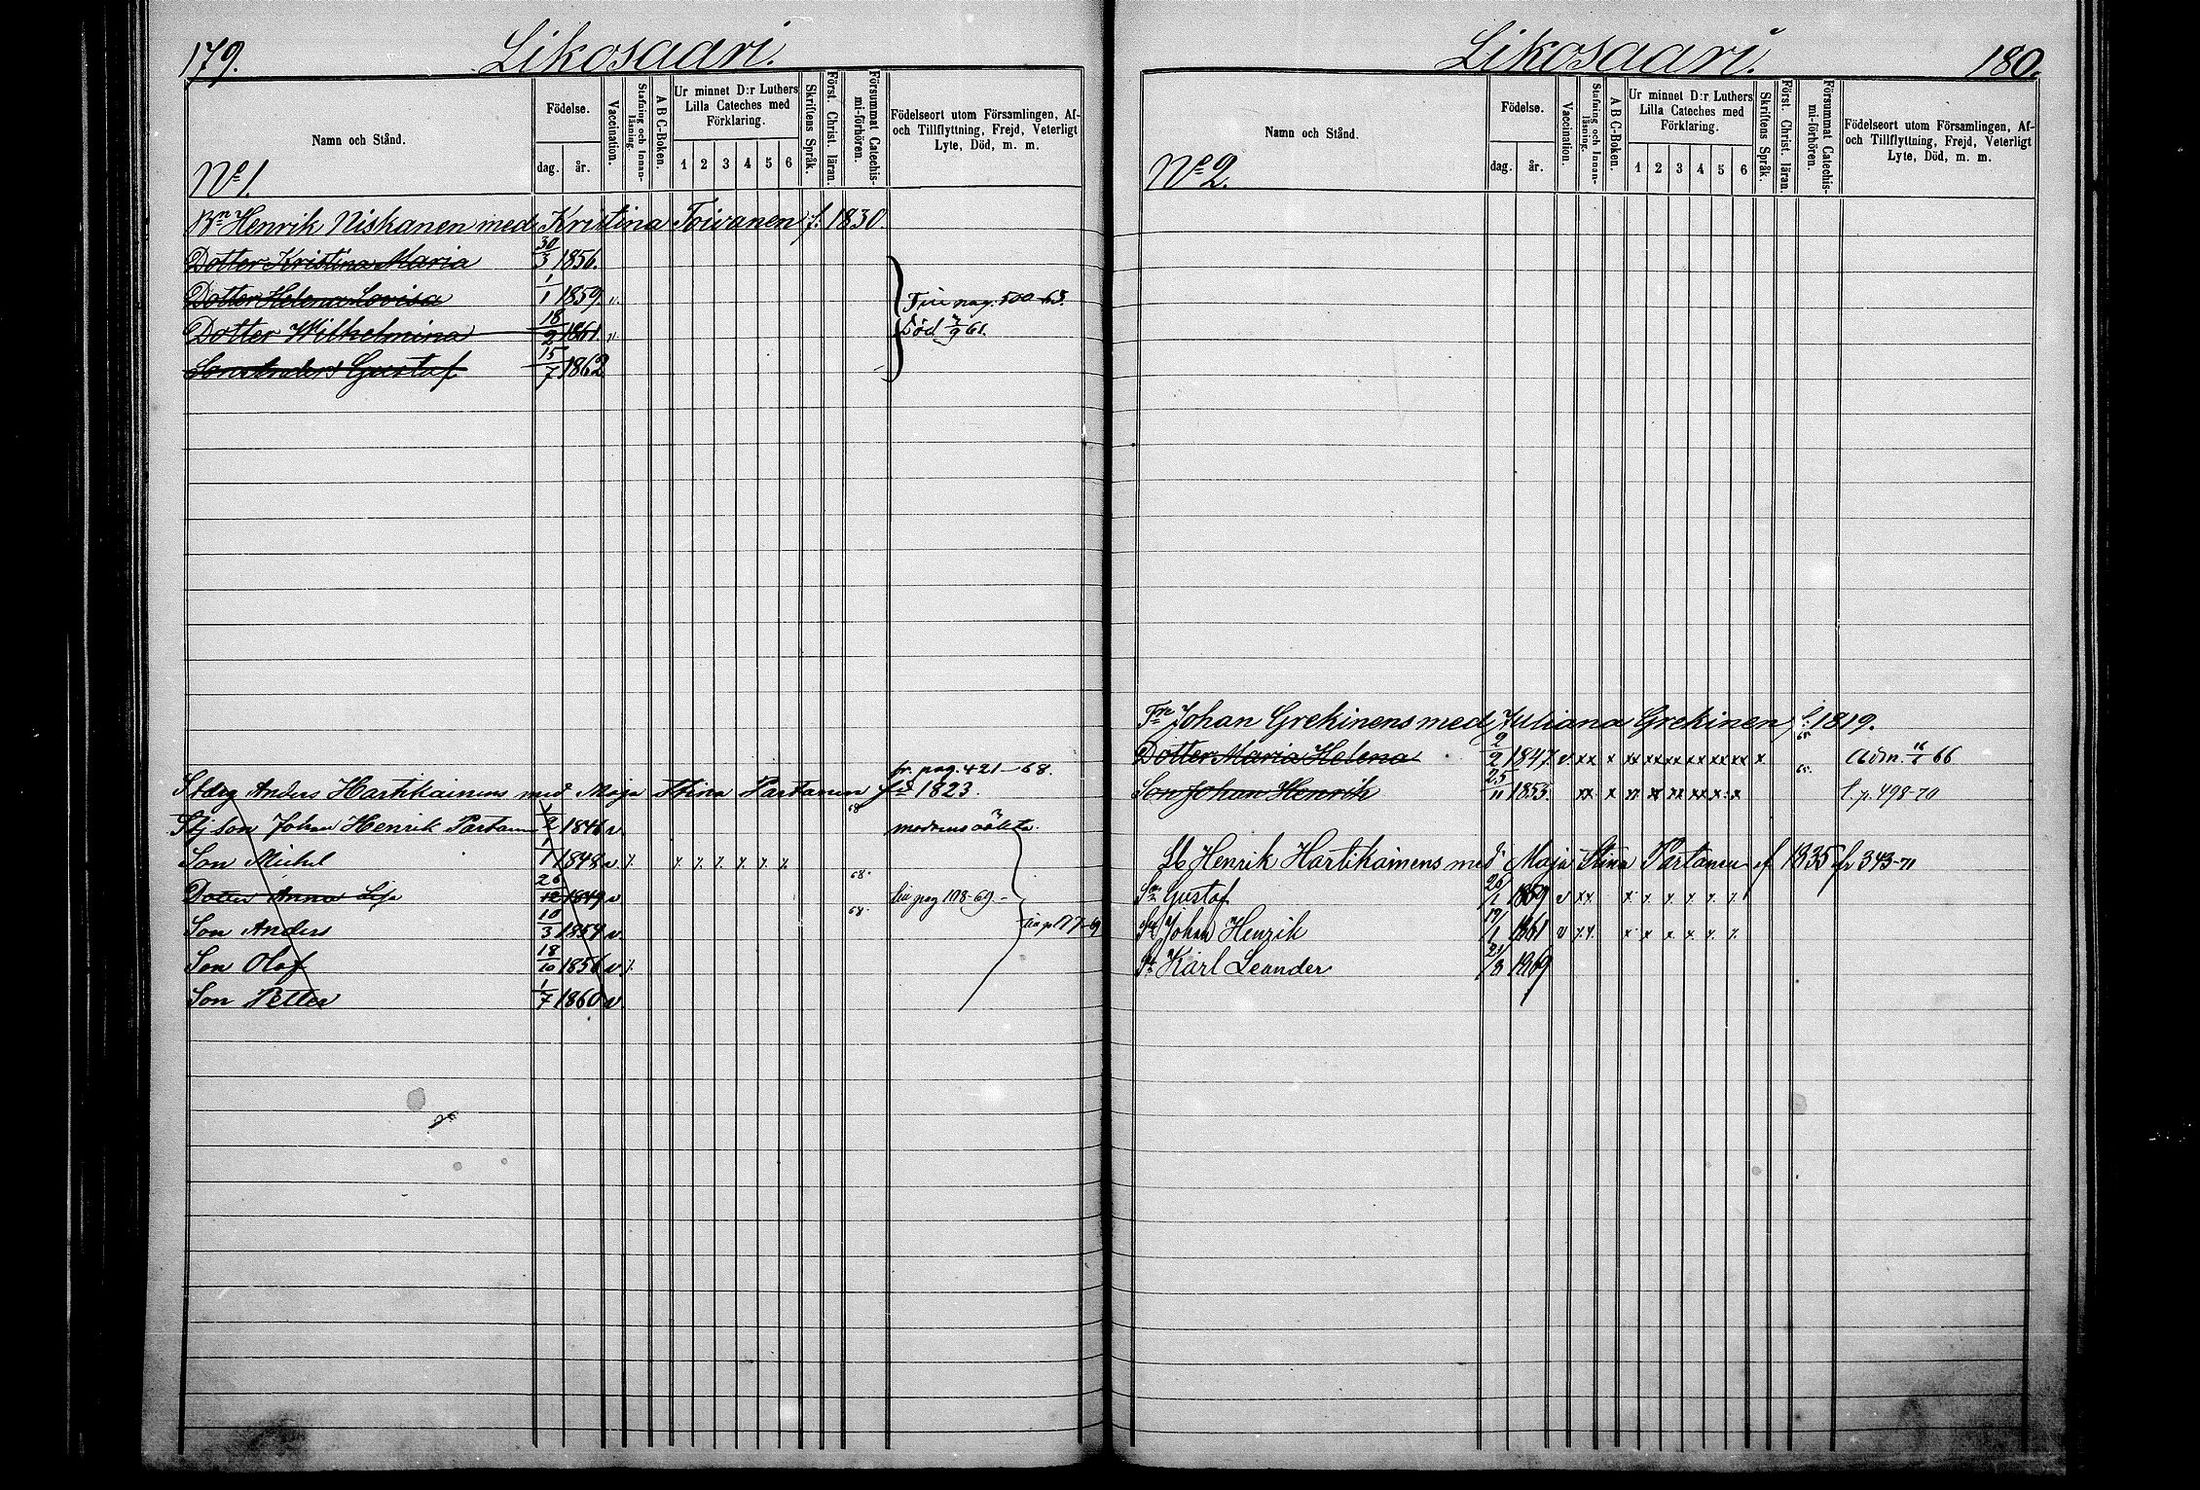 179.
Likosaari.
Namn och Stånd.
Födelse.
dag. år.
Vaccination.
Stafning och Innan-läsning.
A B C-Boken.
Ur minnet D:r Luthers Lilla Cateches med Förklaring.
1 2 3 4 5 6
Skriftens Språk.
Först. Christ. läran.
Försummat Catechis-mi-förhören.
Födelseort utom Församlingen, Af- och Tillflyttning, Frejd, Veterligt Lyte, Död, m. m.
No 1.
Bn Henrik Niskanen med Kristina Toivanen f. 1830.
Dotter Kristina Maria 30/3 1856.
Dotter Helena Lovisa 1/1 1859 v. pag. 500-65.
Dotter Wilhelmina 18/2 1861 v. Död 61.
Son Anders Gustaf 15/7 1862
fr. pag. 421-68.
Anders Hartikainens med Maja Stina Partanen 1823.
Stj son Johan Henrik Partanen 1846 v. 68 modrens oäkta.
Son Michel 1/1 1848 v. x x x x x x x
Dotter Anna Lisa 26/12 1849 v 68. pag 108-69
Son Anders 10/3 1854 v. 68. 177-69
Son Olof 18/10 1856 v. x
Son Petter 1/7 1860 v.
Likosaari.
180.
Namn och Stånd.
Födelse.
dag. år.
Vaccination.
Stafning och Innan-läsning.
A B C-Boken.
Ur minnet D:r Luthers Lilla Cateches med Förklaring.
1 2 3 4 5 6
Skriftens Språk.
Först. Christ. läran.
Försummat Catechis-mi-förhören.
Födelseort utom Församlingen, Af- och Tillflyttning, Frejd, Veterligt Lyte, Död, m. m.
No 2.
Johan Grekinens med Juliana Grekinen f. 1819.
Dotter Maria Helena 2/2 1847 v xx x xx xx xx xx xx xx x 65 Adm. 66
Son Johan Henrik 25/11 1853. xx x xx xx xx xx x x 65. t. p. 498-70
Henrik Hartikainens med Maja Stina Partanen f 1835 fr 343-71
Sn Gustaf 1859 v xx x x x x x x
Sn Johan Henrik 1861 v xx x x x x x x
Sn Karl Leander 1869